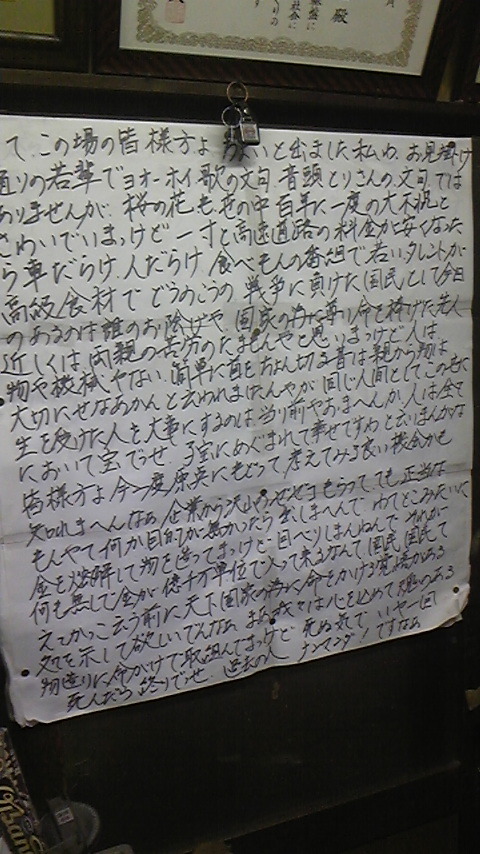 殿
社会に
て、この場の皆様方よ ちょいと出ました私わ、お見掛け
通りの若輩でヨオーホイ歌の文句、音頭とりさんの文句では
ありませんが、桜の花も世の中百年に一度の大不況と
さわいでいまっけど 一寸と高速道路の料金が安くなった
ら車だらけ、人だらけ 食べもんの番組で若いタレントが
高級食材でどうのこうの 戦争に負けた国民として今日
のあるのは誰のお陰ぜや、国家の為に尊い命を捧げた先人
近しくは、両親の苦労のたまもんやと思いまっけど人は
物や機械やない、簡単に首をちょん切る昔は親から物は
大切にせなあかんと云われましたんやが 同じ人間としてこの世に
生を受けた人を大事にするのは、当り前やおまへんか、人は全て
において宝でっせ、子宝にめぐまれて幸せですわと云いまんがな
皆様方よ 今一度原点にもどって 考えてみる良い機会かも
知れまへんなあ 企業から沢山 もらっても 正当な
もんやて何か目的が無かったら出しまへんで わてとこみたいに
金を溶解して物を造ってまっけど
何も無して金が億千万単位で入って来るなんて国民、国民て
えゝかっこ云う前に天下国家の為に命をかける覚悟がある
処を示して欲しいでんなあ まあ我々は心を込めて 魂のある
物造りに命がけで取組んでまっけど 死ぬ気で いや一回
死んだら終りでっせ、 過去の人 ナンマンダー！ですなあ